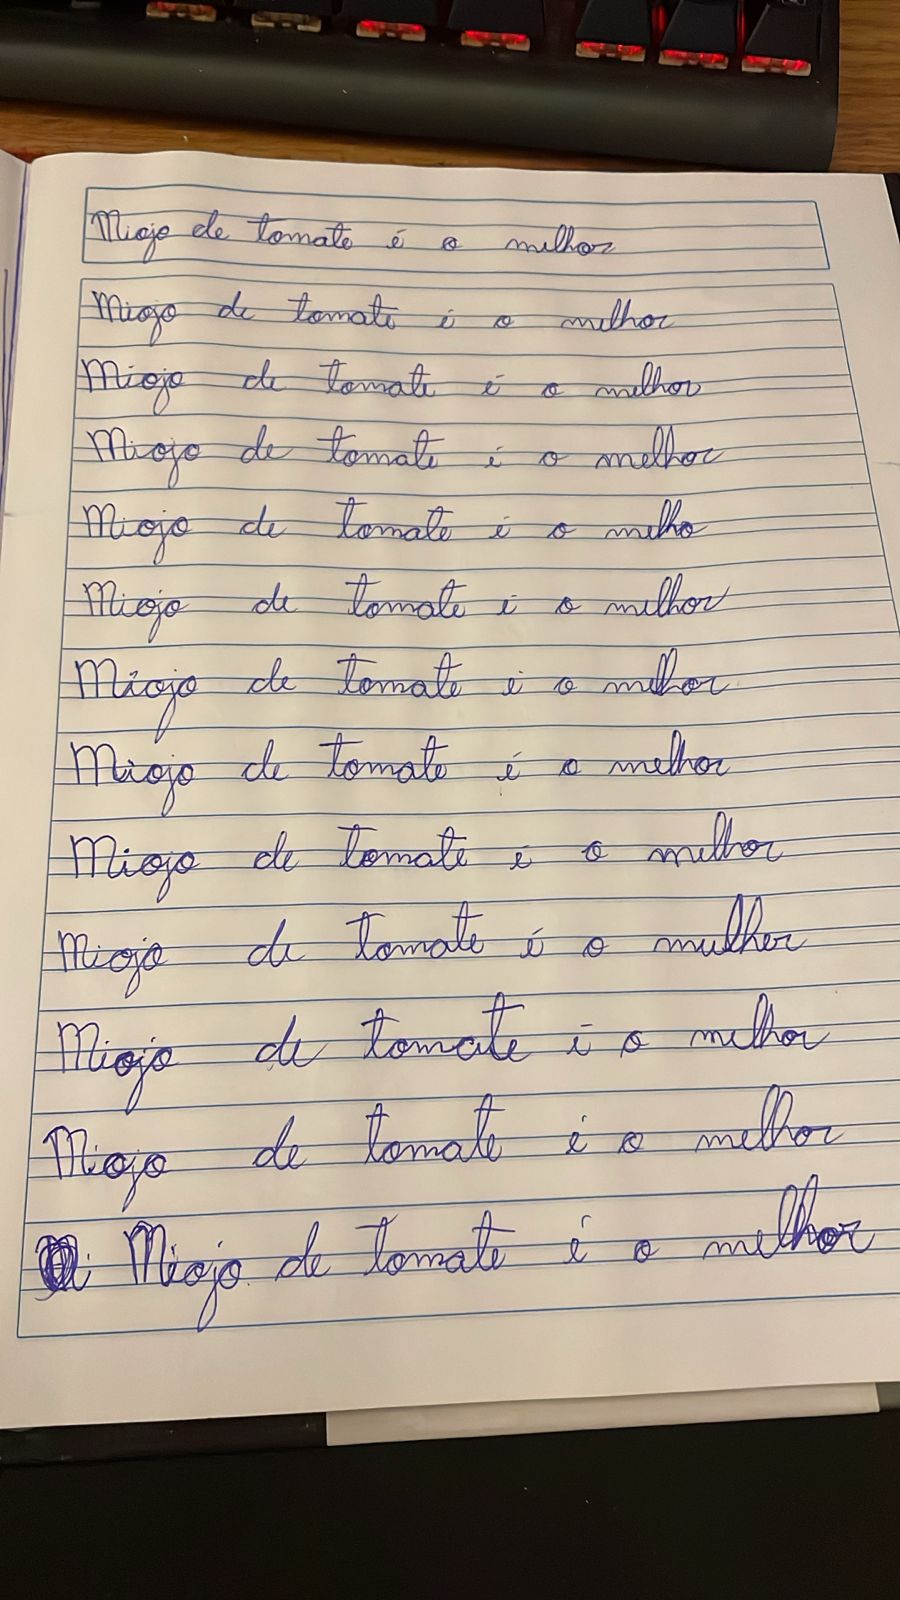 Miojo de tomate é o melhor
Miojo de tomate é o melhor
Miojo de tomate é o melhor
Miojo de tomate é o melhor
Miojo de tomate é o melho
Miojo de tomate é o melhor
Miojo de tomate é o melhor
Miojo de tomate é o melhor
Miojo de tomate é o melhor
Miojo de tomate é o mulher
Miojo de tomate é o melhor
Miojo de tomate é o melhor
Miojo de tomate é o melhor